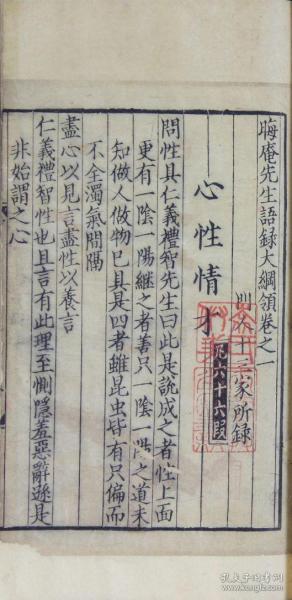 晦庵先生語録大綱領卷之一
三家所録
心性情才
凡六十六段
問性具仁義禮智先生曰此是說成之者性上面
更有一陰一陽繼之者善只一陰一陽之道未
知做人做物已具是四者雖昆虫皆有只偏而
不全濁氣間隔
盡心以見言盡性以養言
仁義禮智性也且言有此理至惻隱羞惡辭遜是
非始謂之心
孔夫子旧书网
www.kongfz.com